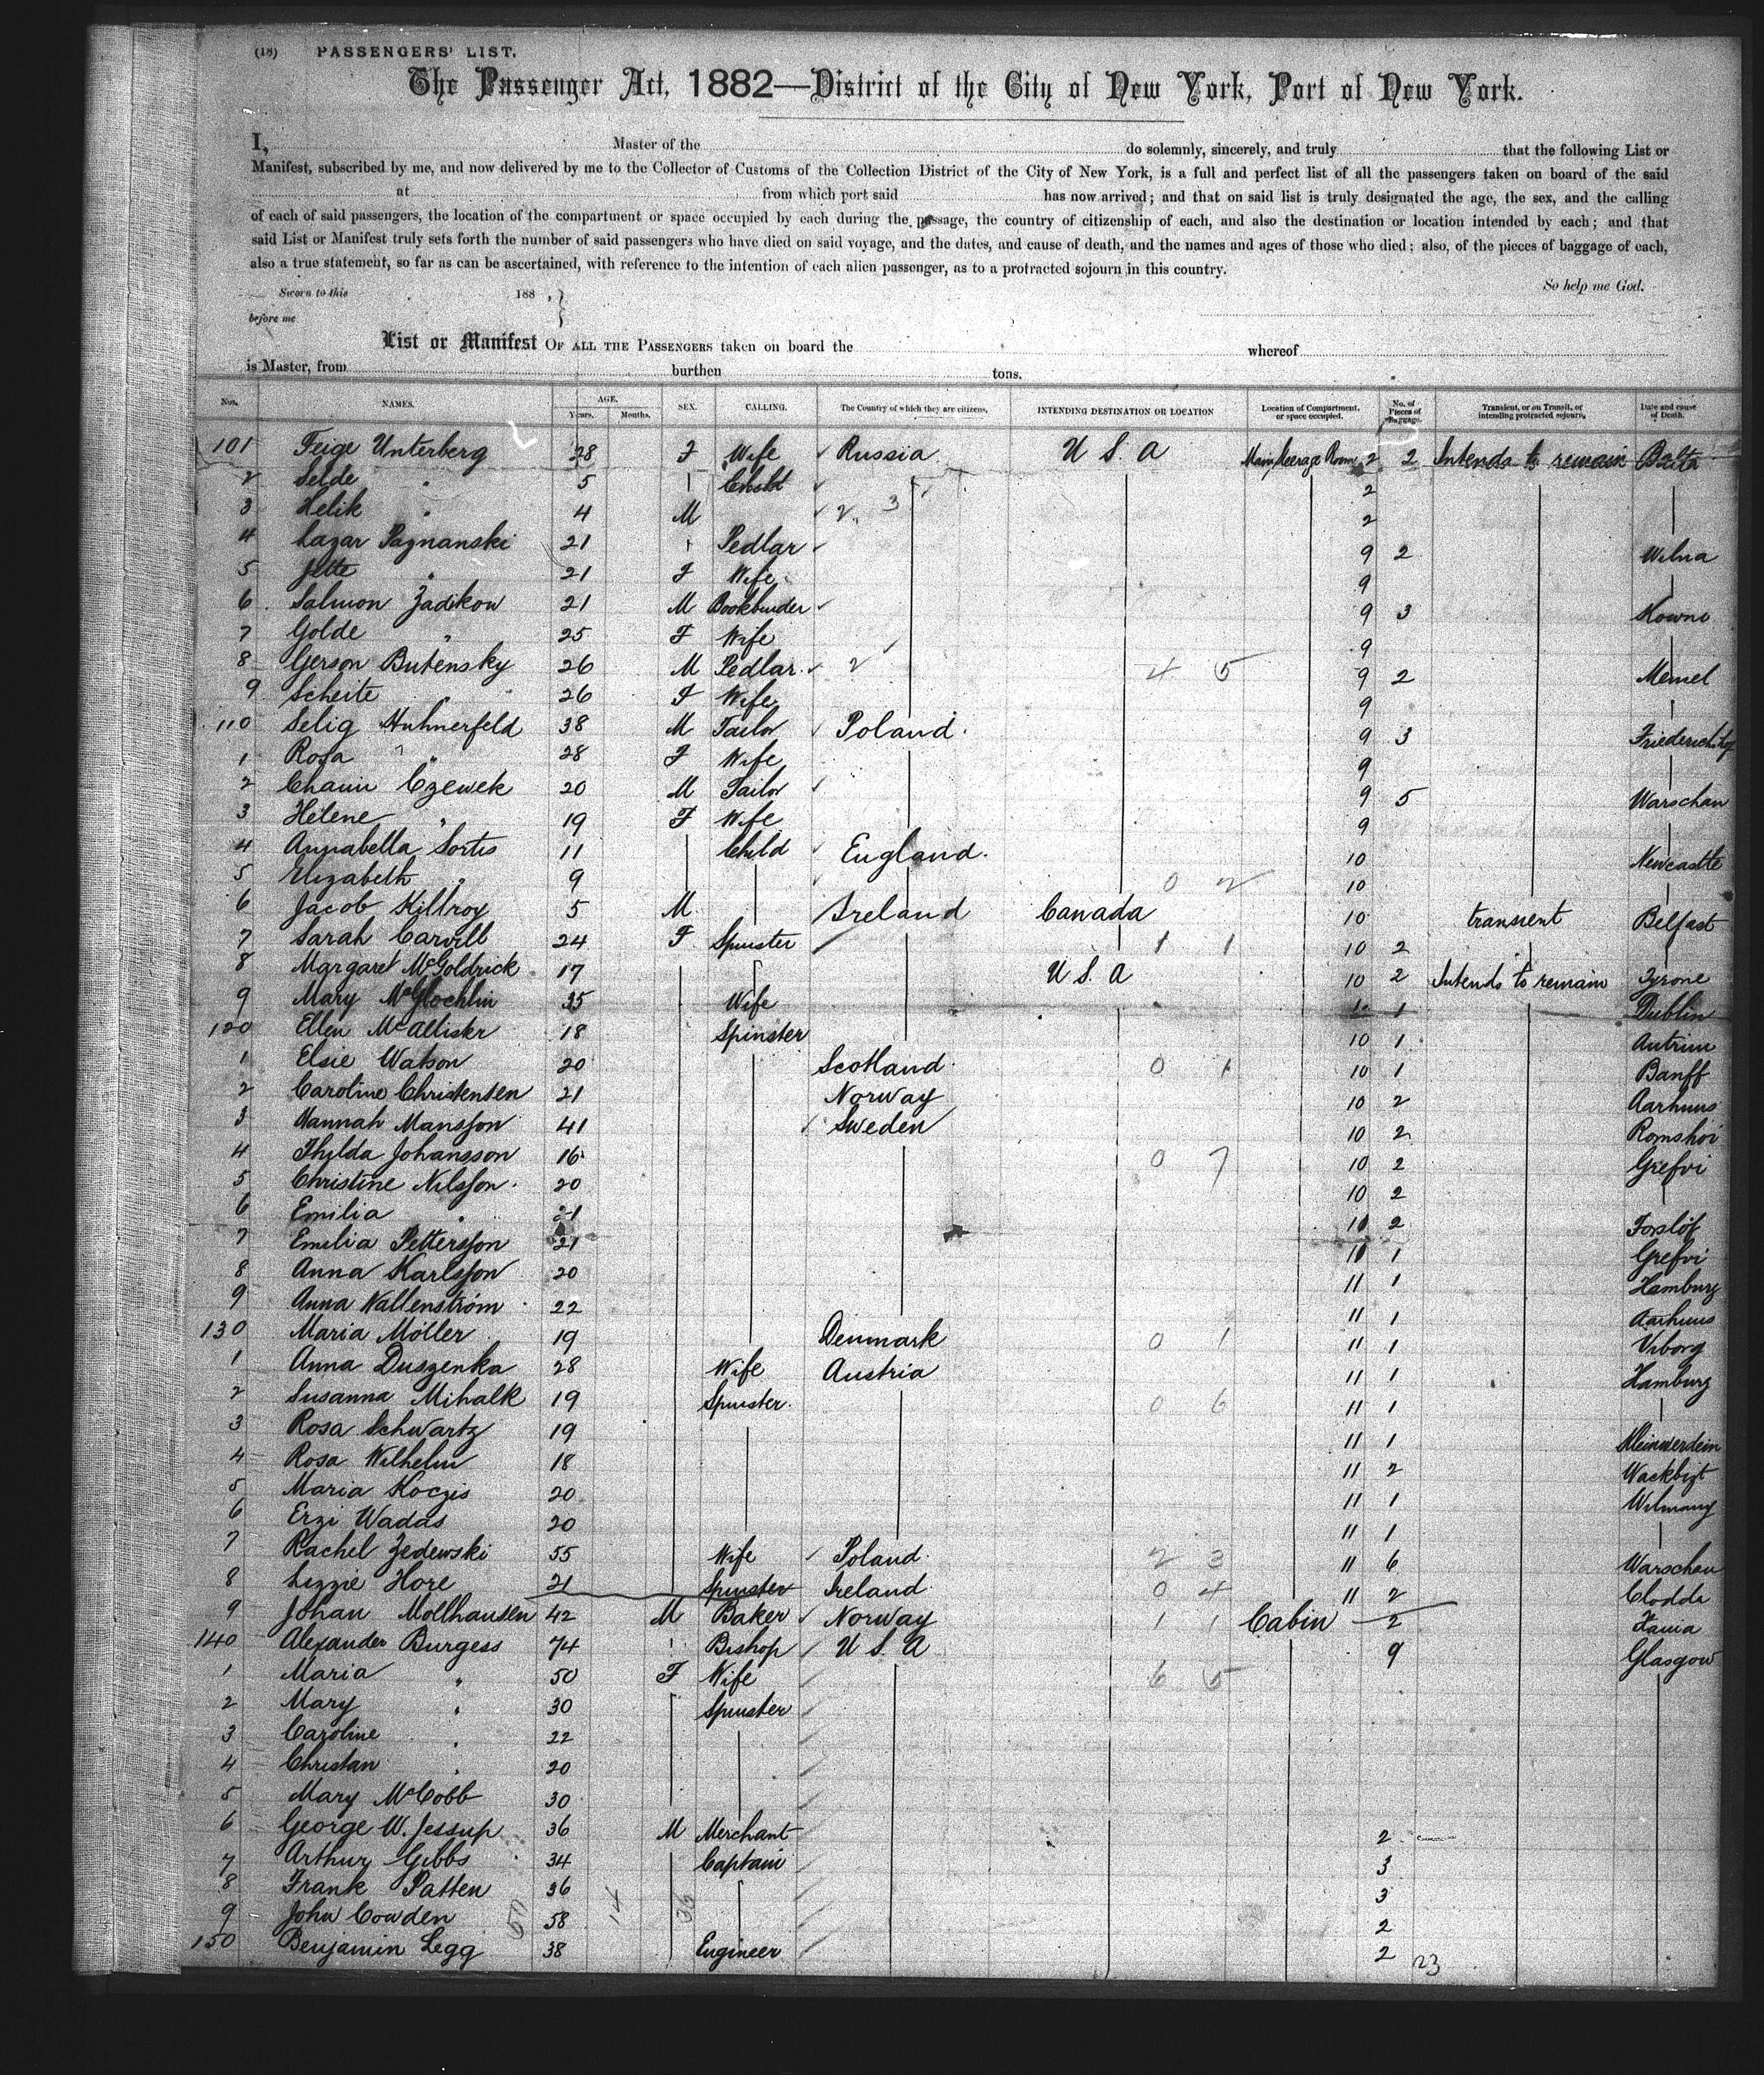 (18) PASSENGERS' LIST.
The Passenger Act, 1882—District of the City of New York, Port of New York.
I, Master of the do solemnly, sincerely, and truly that the following List or
Manifest, subscribed by me, and now delivered by me to the Collector of Customs of the Collection District of the City of New York, is a full and perfect list of all the passengers taken on board of the said
at from which port said has now arrived; and that on said list is truly designated the age, the sex, and the calling
of each of said passengers, the location of the compartment or space occupied by each during the passage, the country of citizenship of each, and also the destination or location intended by each; and that
said List or Manifest truly sets forth the number of said passengers who have died on said voyage, and the dates, and cause of death, and the names and ages of those who died; also, of the pieces of baggage of each,
also a true statement, so far as can be ascertained, with reference to the intention of each alien passenger, as to a protracted sojourn in this country.
So help me God.
Sworn to this 188 ,
before me
List or Manifest OF ALL THE PASSENGERS taken on board the whereof
is Master, from burthen tons.
Nos. NAMES. AGE. Years. Months. SEX. CALLING. The Country of which they are citizens. INTENDING DESTINATION OR LOCATION Location of Compartment, or space occupied. No. of Pieces of Baggage. Transient, or on Transit, or intending protracted sojourn. Date and cause of Death.
101 Feige Unterberg 28 F Wife Russia U S. A Room 2 2 Intends to remain Balta
2 Selde " 5 Child 2
3 Helik " 4 M 2 3 2
4 Lazar Paznanski 21 Pedlar 9 2 Wilna
5 Jette " 21 F Wife 9
6 Salmon Zadikow 21 M Bookbinder 9 3 Kowno
7 Golde " 25 F Wife 9
8 Gerson Butensky 26 M Pedlar 2 4 5 9 2 Memel
9 Scheite " 26 F Wife 9
110 Selig Huhnerfeld 38 M Tailor Poland. 9 3
1 Rosa " 28 F Wife 9
2 Chaim Czewek 20 M Tailor 9 5 Warschau
3 Helene " 19 F Wife 9
4 Annabella Sortis 11 Child England. 10 Newcastle
5 Elizabeth " 9 0 2 10
6 Jacob Killroy 5 M Ireland Canada 10 transient Belfast
7 Sarah Carvill 24 F Spinster 1 1 10 2
8 Margaret McGoldrick 17 U S. A 10 2 Intends to remain Tyrone
9 Mary McGlochlin 25 Wife 1 Dublin
120 Ellen McAllister 18 Spinster 10 1 Antrim
1 Elsie Watson 20 Scotland 0 1 10 1 Banff
2 Caroline Christensen 21 Norway 10 2 Aarhuus
3 Hannah Mansson 41 Sweden 10 2
4 Thilda Johansson 16 0 7 10 2 Grefvi
5 Christine Nilsson 20 10 2
6 Emilia " 21 2 Forslöf
7 Emilia Pettersson 21 1 Grefvi
8 Anna Karlsson 20 11 1 Hamburg
9 Anna Nallenström 22 11 1 Aarhuus
130 Maria Möller 19 Denmark 0 1 11 1 Viborg
1 Anna Duszenka 28 Wife Austria 11 1 Hamburg
2 Susanna Mihalk 19 Spinster 0 6 11 1
3 Rosa Schwartz 19 11 1
4 Rosa Wilhelm 18 11 2
5 Maria Koczis 20 11 1
6 Erzi Wadas 20 11 1
7 Rachel Zedewski 55 Wife Poland. 2 3 11 6 Warschau
8 Lizzie Hore 21 Spinster Ireland 0 4 11 2
9 Johan Mollhausen 42 M Baker Norway 1 1 Cabin 2
140 Alexander Burgess 74 Bishop U S. A 9 Glasgow
1 Maria " 50 F Wife 6 5
2 Mary " 30 Spinster
3 Caroline " 22
4 Christan " 20
5 Mary McCobb 30
6 George W. Jessup 36 M Merchant 2
7 Arthur Gibbs 34 Captain 3
8 Frank Patten 36 3
9 John Cowden 58 2
150 Benjamin Legg 38 Engineer 2
50 14 36 23